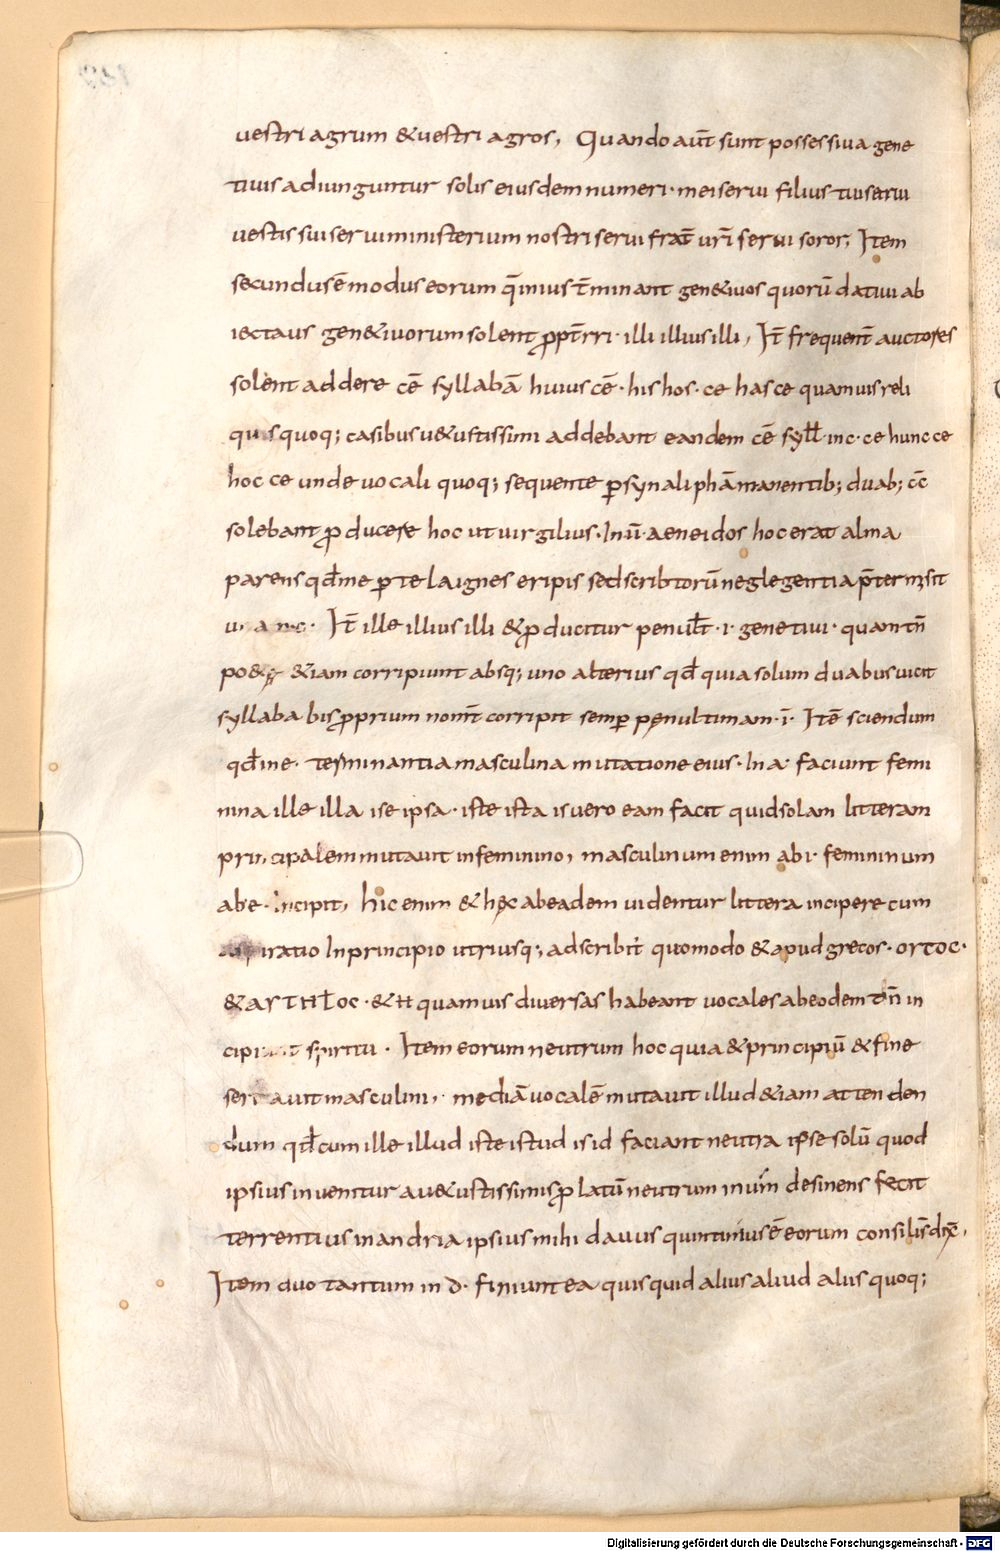 vestri agrum &vestri agros, Quando aut̄ sunt possessiua gene
tiuis adiunguntur solis eiusdem numeri· mei serui filius tui serui
vestis sui serui ministerium nostri serui frat̄ ur̄i serui soror, Item
secundus ē modus eorum q̄ in ius t̄minant gen&iuos quorū datiui ab
iecta us gen&iuorum solent ꝓpt̄rri· illi illius illi, It̄ frequent̄ auctores
solent addere cē syllabā huius cē· his hos· ce has ce quamuis reli
quis quoq; casibus u&ustissimi addebant eandem cē syll̄ inc· ce hunc ce
hoc ce unde uocali quoq; sequente ꝑ synaliphā manentib; duab; cc̄
solebant ꝓducere hoc ut uirgilius· In ū· aeneidos hoc erat alma
parens qd̄ me ꝑ te la ignes eripis sed scribtorū neglegentia p̄termisit
unam c· It̄ ille illius illi &ꝓducitur penult̄· i· genetiui· quam tn̄
po&ę &iam corripiunt absq; uno alterius qd̄ quia solum duabus uicit
syllaba bis ꝓprium nom̄t corripit semꝑ penultimam· i· Itē sciendum
qd̄ in e· terminantia masculina mutatione eius· In a· faciunt femi
nina ille illa ise ipsa· iste ista is uero eam facit quid solam litteram
principalem mutauit in feminino, masculinum enim ab i· femininum
ab e· incipit, hic enim & hęc ab eadem uidentur littera incipere cum
aspiratio In principio utriusq; adscribit̄ quomodo & apud grecos· orτoc·
& &ⱵH quamuis diuersas habeant uocales ab eodem tn̄ in
cipiunt spiritu· Item eorum neutrum hoc quia & principiū & fine
seruauit masculini, mediā uocalē mutauit illud &iam attenden
dum qd̄ cum ille illud iste istud is id faciant neutra ipse solū quod
ipsius inuenitur a u&ustissimis ꝓlatū neutrum in um̄ desinens fecit
terrentius in andria ipsius mihi dauus qui intimus ē eorum consiliis dix̄,
Item duo tantum in d· finiunt ea quis quid alius aliud alus quoq;